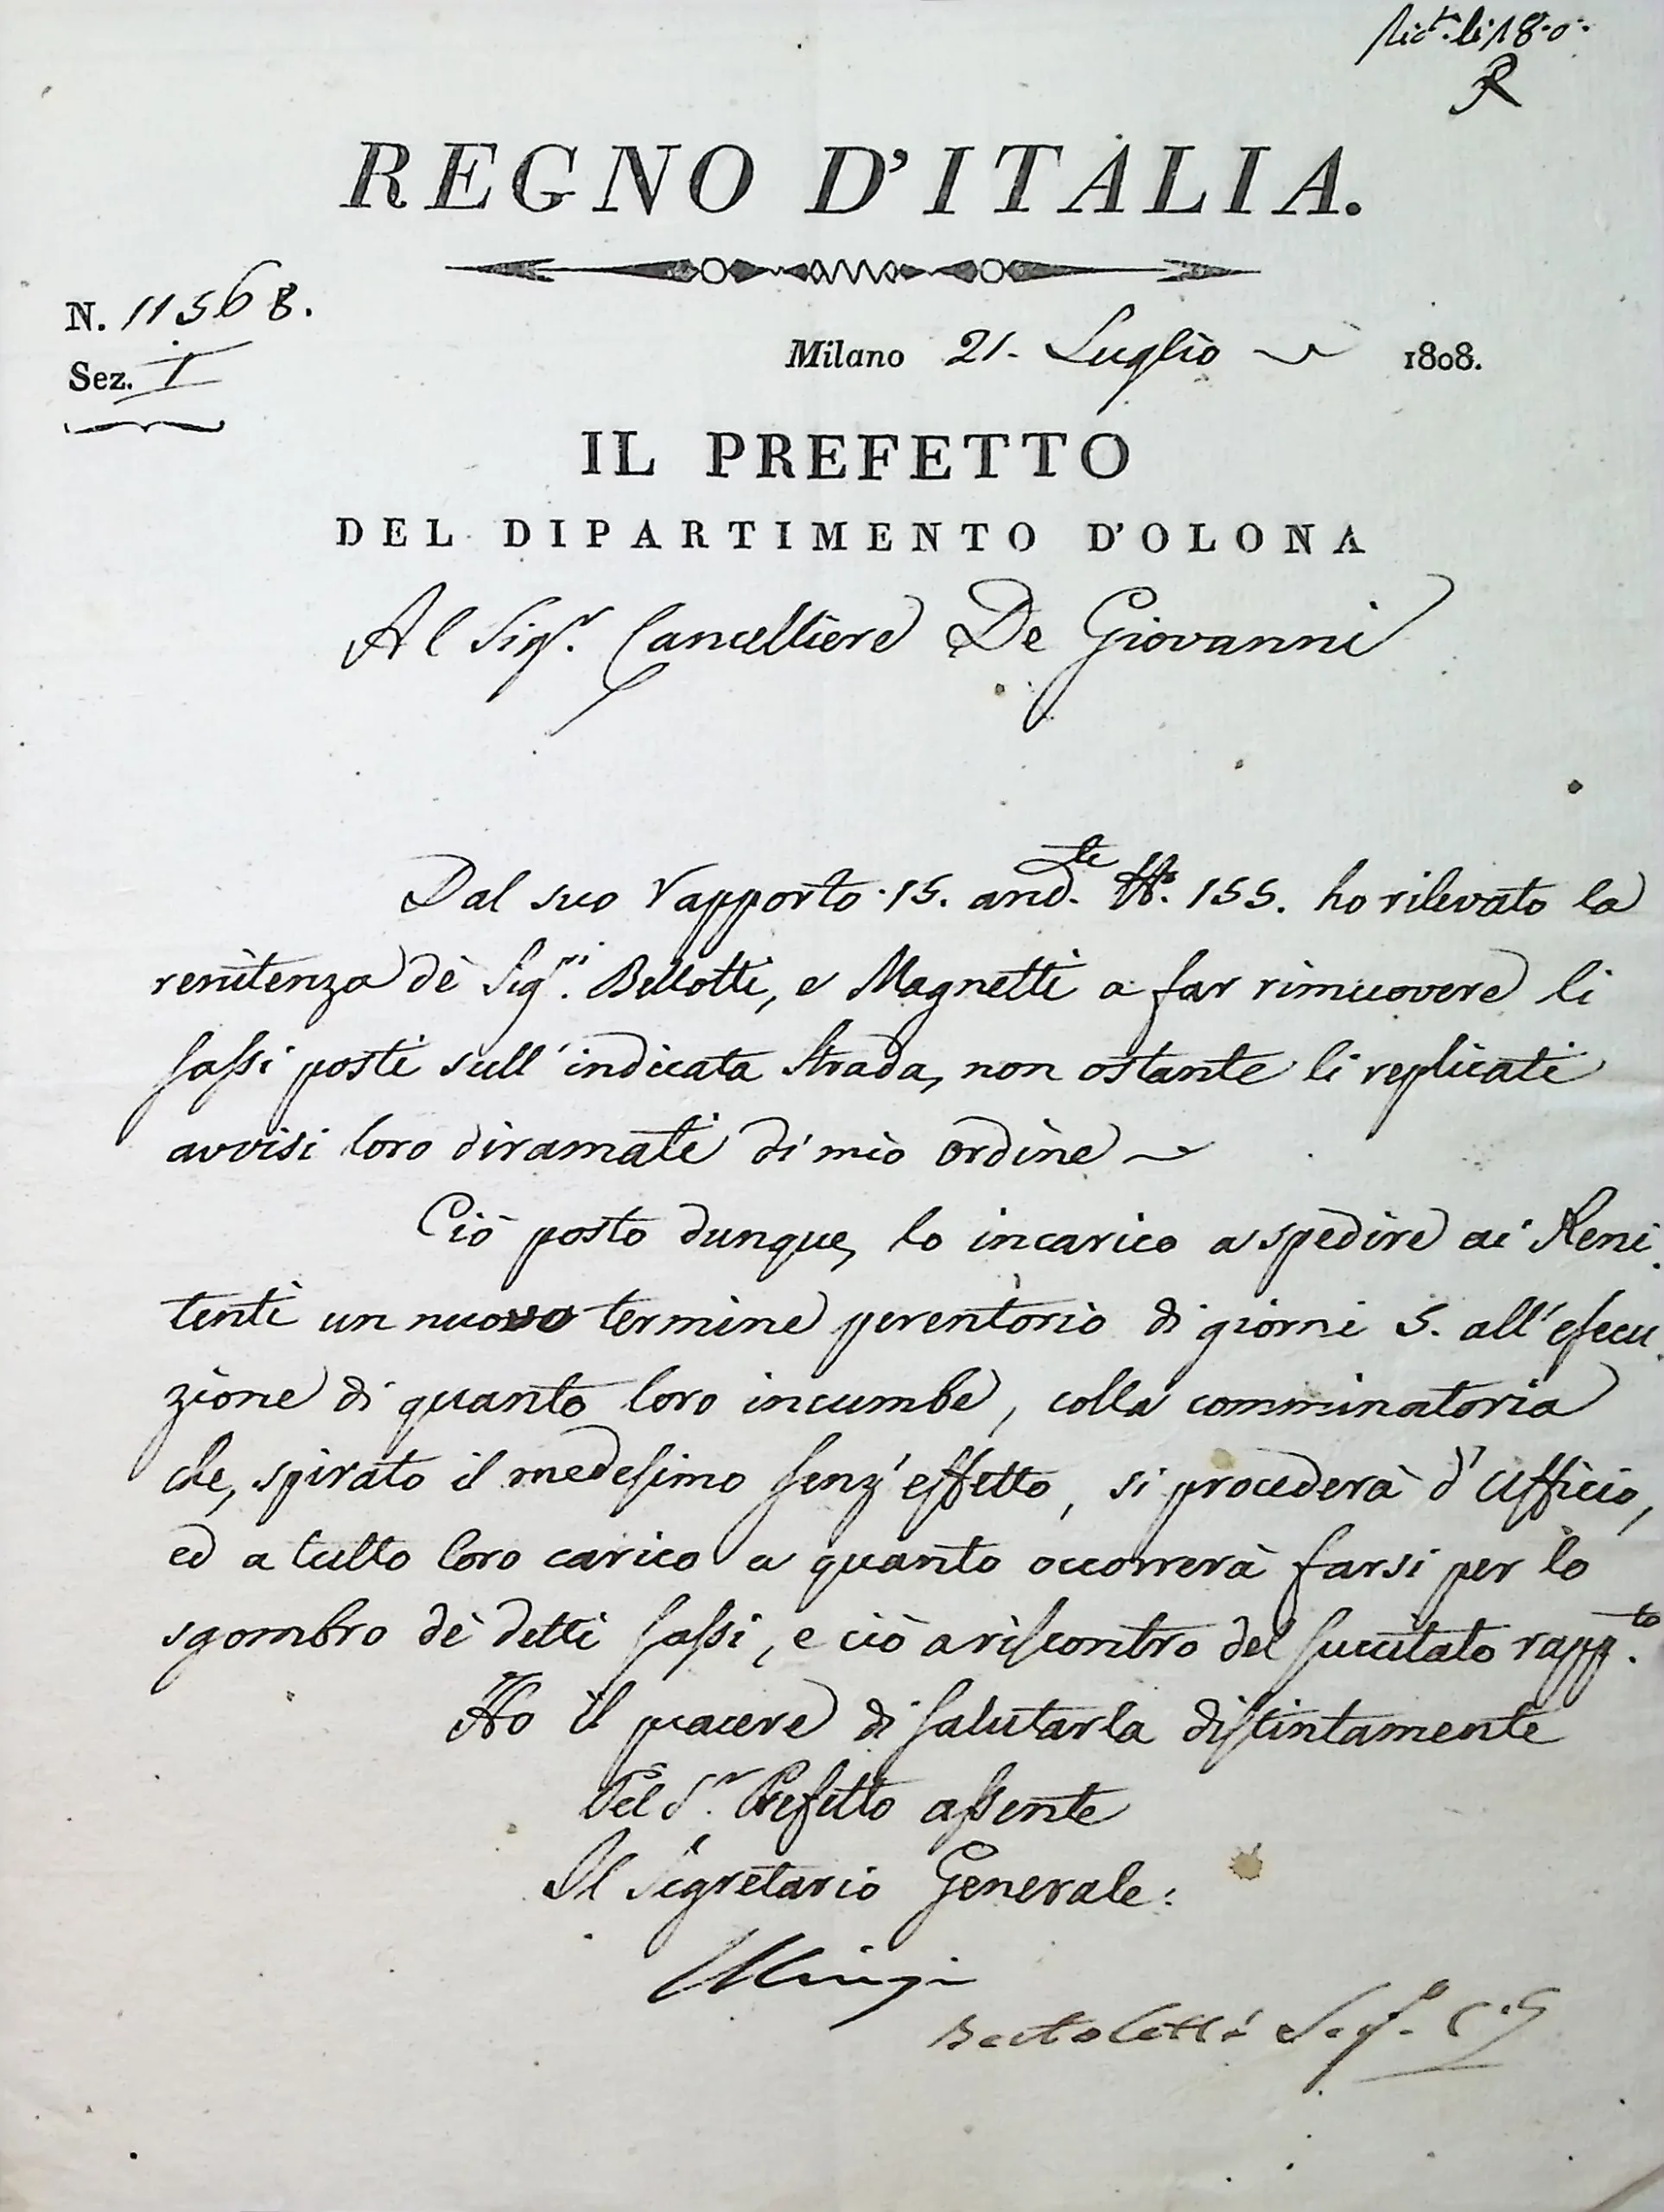 REGNO D'ITALIA.
N. 11568.
Milano 21. Luglio 1808.
Sez. I
IL PREFETTO
DEL DIPARTIMENTO D'OLONA
Al Sigr. Cancelliere De Giovanni
Dal suo rapporto 15. andte. N. 155. ho rilevato la
renitenza de' Sigri. Bellotti, e Magnetti a far rimuovere li
sassi posti sull'indicata Strada, non ostante li replicati
avvisi loro diramati di mio ordine
Ciò posto dunque, lo incarico a spedire ai Reni-
tenti un nuovo termine perentorio di giorni 5. all'esecu-
zione di quanto loro incumbe, colla comminatoria
che, spirato il medesimo senz'effetto, si procederà d'Ufficio,
ed a tutto loro carico a quanto occorrerà farsi per lo
sgombro de' detti sassi, e ciò a riscontro del succitato rappto.
Ho il piacere di salutarla distintamente
Pel Sr. Prefetto assente
Il Segretario Generale.
Bertoletti